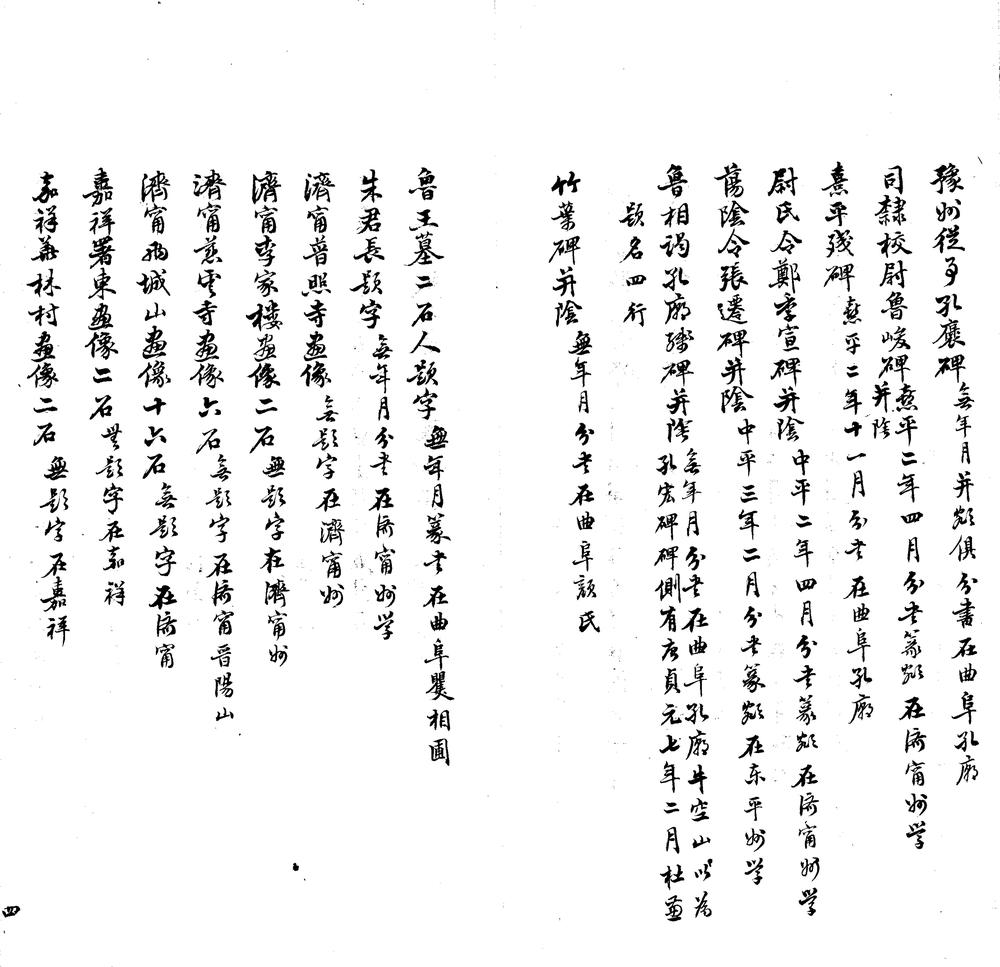 豫州從事孔襃碑無年月并額俱分書在曲阜孔廟
司隸校尉魯峻碑并陰熹平二年四月分書篆額在濟甯州学
熹平殘碑熹平二年十一月分書在曲阜孔廟
尉氏令鄭季宣碑并陰中平二年四月分書篆額在濟甯州学
蕩陰令張遷碑并陰中平三年二月分書篆額在东平州学
魯相謁孔廟殘碑并陰無年月分書在曲阜孔廟牛空山以為孔宏碑碑側有唐貞元七年二月杜兼
題名四行
竹葉碑并陰無年月分書在曲阜顏氏
魯王墓二石人題字無年月篆書在曲阜矍相圃
朱君長題字無年月分書在濟甯州学
濟甯普照寺畫像無題字在濟甯州
濟甯李家楼畫像二石無題字在濟甯州
濟甯慈雲寺畫像六石無題字在濟甯晋陽山
濟甯兩城山畫像十六石無題字在濟甯
嘉祥署東畫像二石無題字在嘉祥
嘉祥華林村畫像二石無題字在嘉祥
四